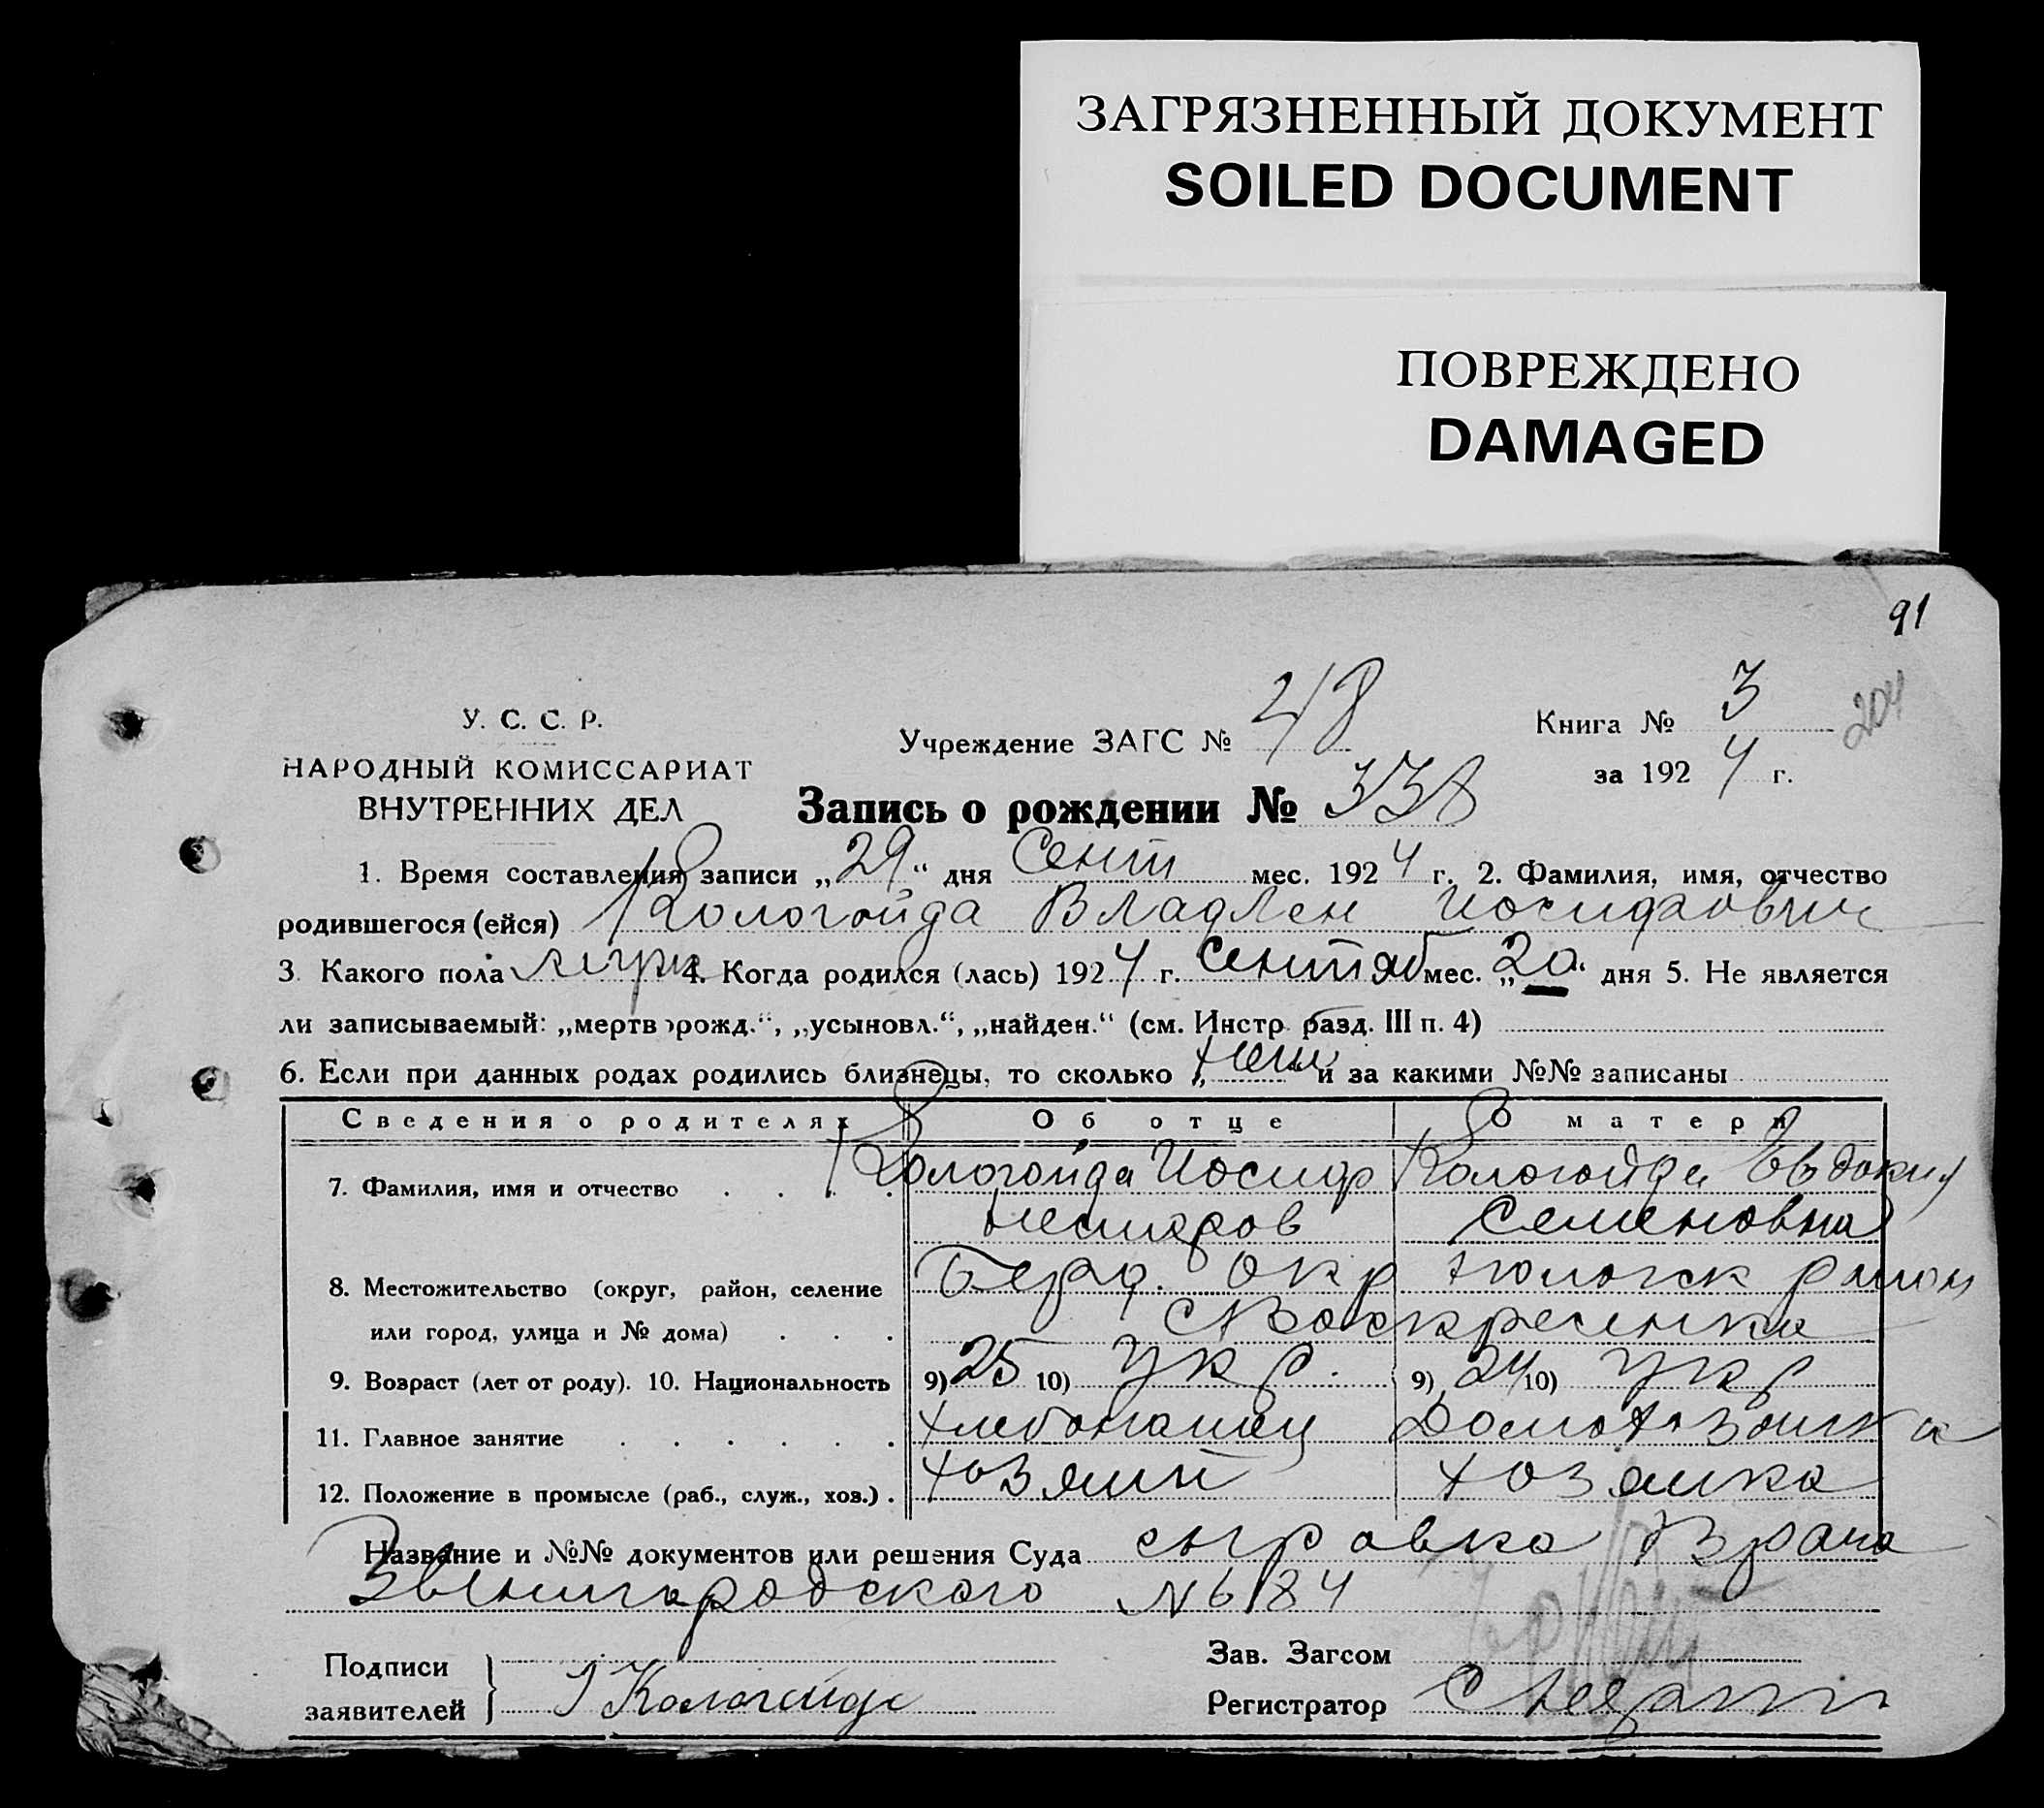 ЗАГРЯЗНЕННЫЙ ДОКУМЕНТ
SOILED DOCUMENT
ПОВРЕЖДЕНО
DAMAGED
91
204
У. С. С. Р.
НАРОДНЫЙ КОМИССАРИАТ
ВНУТРЕННИХ ДЕЛ
Учреждение ЗАГС № 48
Книга № 3
за 192 4 г.
Запись о рождении № 338
1. Время составления записи „29“ дня Сент мес. 1924 г. 2. Фамилия, имя, отчество
родившегося (ейся) Кологойда Владлен Иосифович
3. Какого пола мужс 4. Когда родился (лась) 1924 г. Сентяб мес. „20“ дня 5. Не является
ли записываемый: „мертворожд.“, „усыновл.“, „найден.“ (см. Инстр. разд. III п. 4)
6. Если при данных родах родились близнецы, то сколько „нет“ и за какими №№ записаны
Сведения о родителях Об отце О матери
7. Фамилия, имя и отчество Кологойда Иосиф Кологойда Евдокия
Семеновна
8. Местожительство (округ, район, селение Берд. окр район
или город, улица и № дома) Воскресенка
9. Возраст (лет от роду). 10. Национальность 9) 25 10) Укр. 9) 24 10) Укр
11. Главное занятие хлебопашец Домохозяйка
12. Положение в промысле (раб., служ., хоз.) хозяин хозяйка
Название и №№ документов или решения Суда справка Врача
Звенигородского № 6184
Подписи
заявителей } І Кологойда
Зав. Загсом
Регистратор